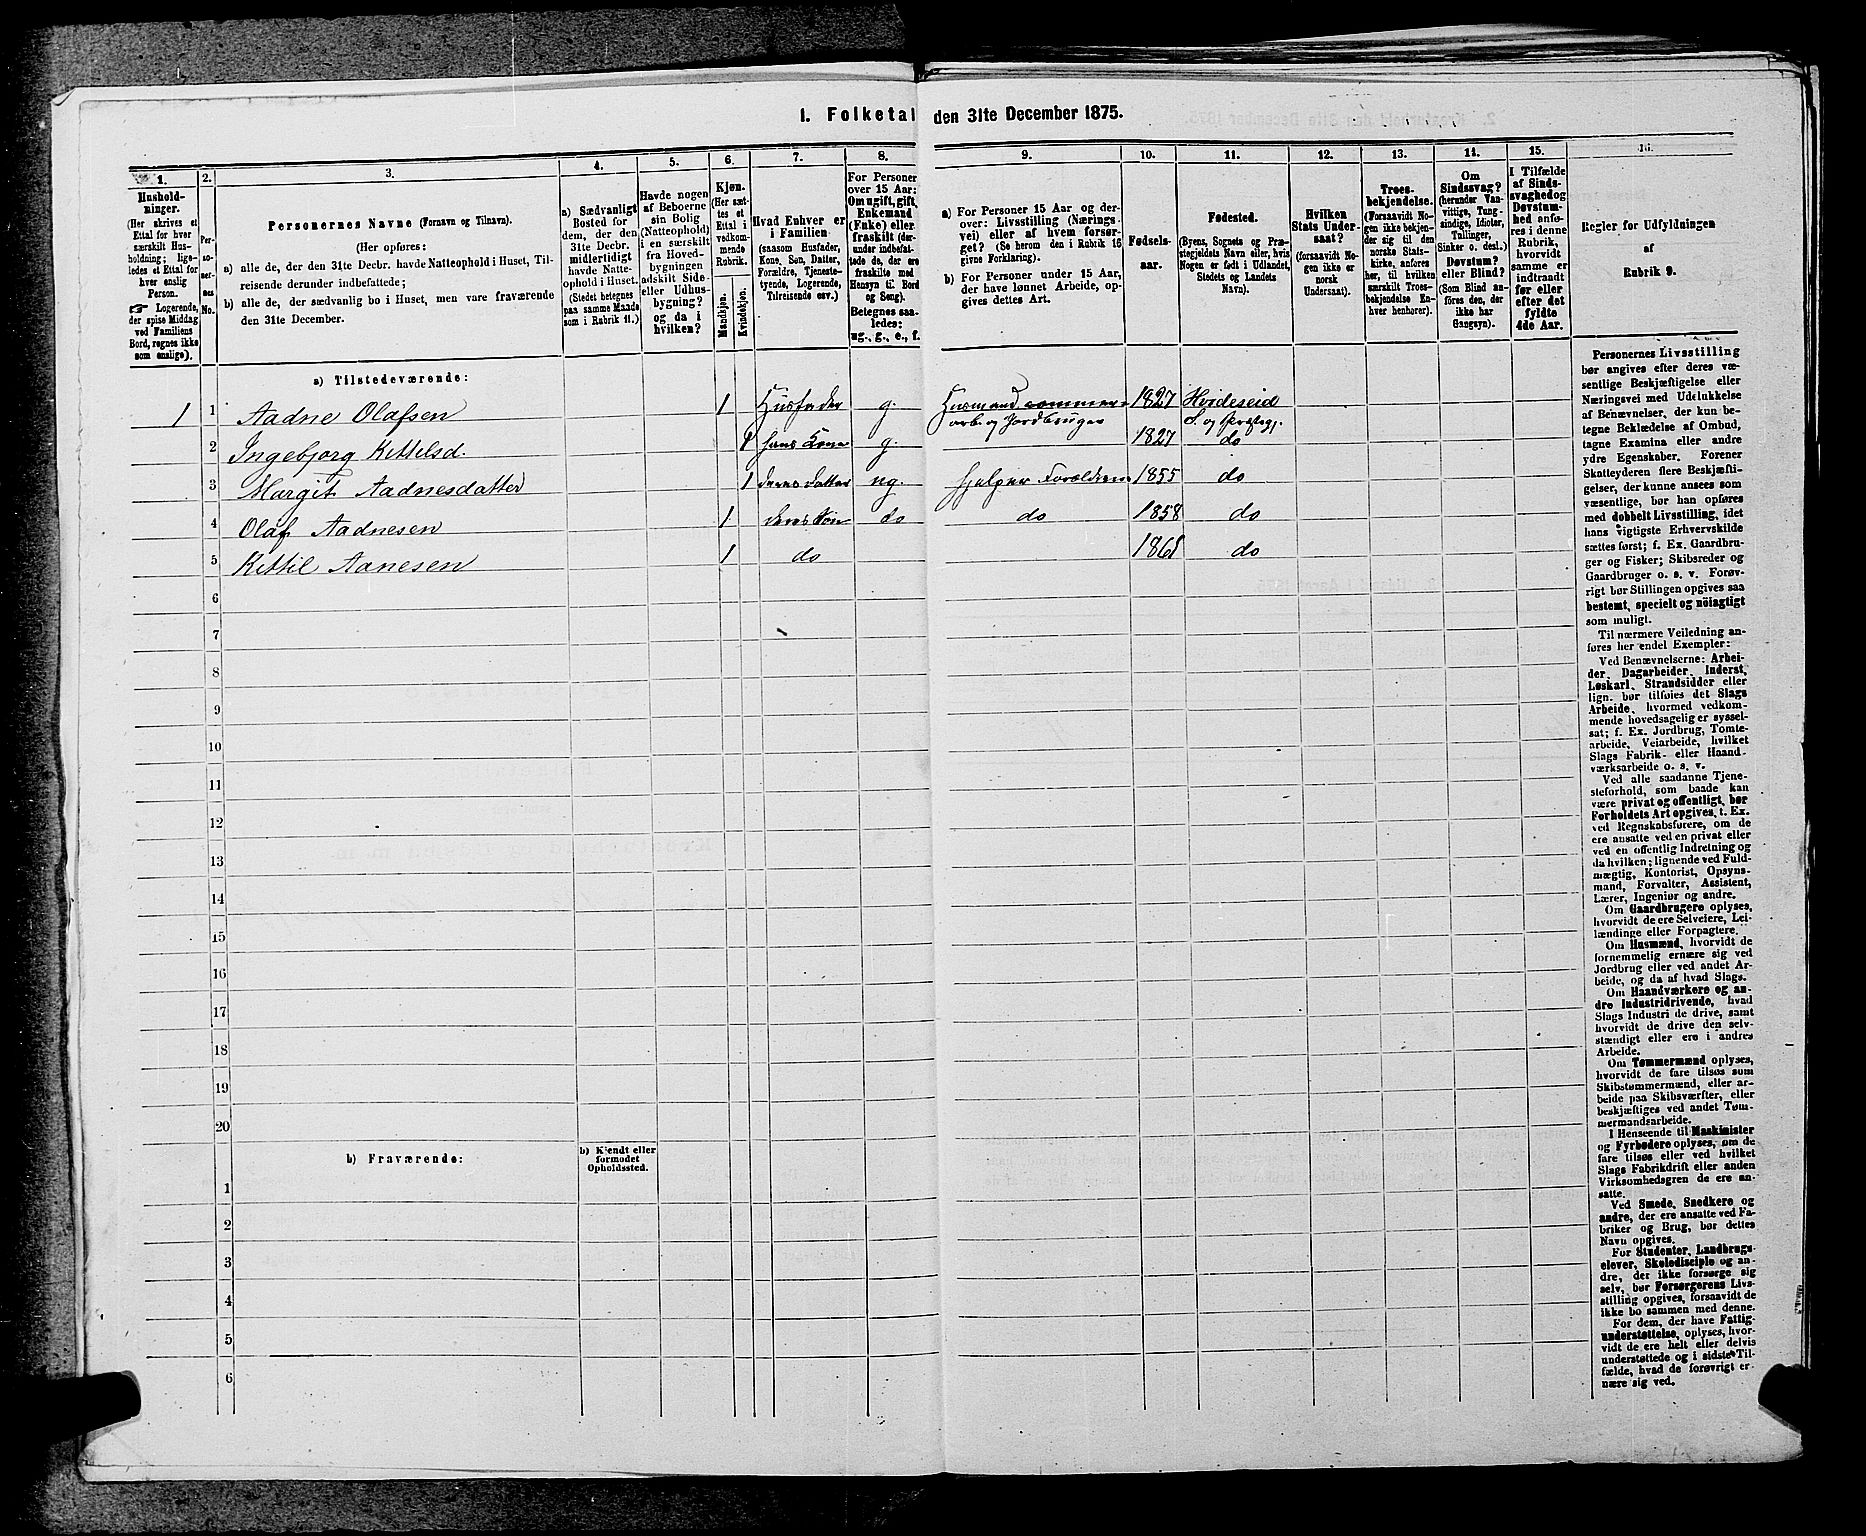 1. Folketal den 31te December 1875.
1.
Hushold-
ninger.
(Her skrives et
Ettal for hver
særskilt Hus-
holdning; lige-
ledes et Ettal for
hver enslig
Person.
☞ Logerende,
der spise Middag
ved Familiens
Bord, regnes ikke
som enslige).
2.
Per-
so-
ner-
nes
No.
3.
Personernes Navne (Fornavn og Tilnavn).
(Her opføres:
a) alle de, der den 31te Decbr. havde Natteophold i Huset, Til-
reisende derunder indbefattede;
b) alle de, der sædvanlig bo i Huset, men vare fraværende
den 31te December.
4.
a) Sædvanligt
Bosted for
dem, der den
31te Decbr.
midlertidigt
havde Natte-
ophold i Huset.
(Stedet betegnes
paa samme Maade
som i Rubrik 11.)
5.
Havde nogen
af Beboerne
sin Bolig
(Natteophold)
i en særskilt
fra Hoved-
bygningen
adskilt Side-
eller Udhus-
bygning?
og da i
hvilken?
6.
Kjøn.
(Her sæt-
tes et
Ettal i
vedkom-
mende
Rubrik.
Mandkjøn.
Kvindekjøn.
7.
Hvad Enhver er
i Familien
(saasom Husfader,
Kone, Søn, Datter,
Forældre, Tjeneste-
tyende, Logerende,
Tilreisende osv.)
8.
For Personer
over 15 Aar:
Om ugift, gift,
Enkemand
(Enke) eller
fraskilt (der-
under indbefat-
tede de, der ere
fraskilte med
Hensyn til Bord
og Seng).
Betegnes saa-
ledes:
ug., g., e., f.
9.
a) For Personer 15 Aar og der-
over: Livsstilling (Nærings-
vei) eller af hvem forsør-
get? (Se herom den i Rubrik 16
givne Forklaring).
b) For Personer under 15 Aar,
der have lønnet Arbeide, op-
gives dettes Art.
10.
Fødsels-
aar.
11.
Fødested.
(Byens, Sognets og Præ-
stegjeldets Navn eller, hvis
Nogen er født i Udlandet,
Stedets og Landets
Navn).
12.
Hvilken
Stats Under-
saat?
(forsaavidt No-
gen ikke er
norsk
Undersaat).
13.
Troes-
bekjendelse.
(Forsaavidt No-
gen ikke bekjen-
der sig til den
norske Stats-
kirke, anføres
her, til hvilken
særskilt Troes-
bekjendelse En-
hver henhører).
14.
Om
Sindssvag?
(herunder Van-
vittige, Tung-
sindige, Idioter,
Tullinger,
Sinker o. desl.)
Døvstum?
eller Blind?
(Som Blind an-
føres den, der
ikke har
Gangsyn).
15.
I Tilfælde
af Sinds-
svaghed og
Døvstum-
hed anfø-
res i denne
Rubrik,
hvorvidt
samme er
indtraadt
før eller
efter det
fyldte
4de Aar.
16.
Regler for Udfyldningen
af
Rubrik 9.
a) Tilstedeværende:
1 1 Aadne Olafsen 1 Husfader g. Husmand 1827 Hvideseid
arb. og Jordbruger S. og Præstegj.
2 Ingebjorg Kittilsd. 1 hans Kone g. 1827 do
3 Margit Aadnesdatter 1 deres datter ug. hjelper Forældrene 1855 do
4 Olaf Aadnesen 1 deres Søn do do 1858 do
5 Kittil Aanesen 1 do 1868 do
6
7
8
9
10
11
12
13
14
15
16
17
18
19
20
b) Fraværende:
b) Kjendt eller
formodet
Opholdssted.
1
2
3
4
5
6
Personernes Livsstilling
bør angives efter deres væ-
sentlige Beskjæftigelse eller
Næringsvei med Udelukkelse
af Benævnelser, der kun be-
tegne Beklædelse af Ombud,
tagne Examina eller andre
ydre Egenskaber. Forener
Skatteyderen flere Beskjæfti-
gelser, der kunne ansees som
væsentlige, bør han opføres
med dobbelt Livsstilling, idet
hans vigtigste Erhvervskilde
sættes først; f. Ex. Gaardbru-
ger og Fisker; Skibsreder og
Gaardbruger o. s. v. Forøv-
rigt bør Stillingen opgives saa
bestemt, specielt og nöiagtigt
som muligt.
Til nærmere Veiledning an-
føres her endel Exempler:
Ved Benævnelserne: Arbei-
der, Dagarbeider, Inderst,
Løskarl, Strandsidder eller
lign. bør tilføies det Slags
Arbeide, hvormed vedkom-
mende hovedsagelig er syssel-
sat; f. Ex. Jordbrug, Tomte-
arbeide, Veiarbeide, hvilket
Slags Fabrik- eller Haand-
værksarbeide o. s. v.
Ved alle saadanne Tjene-
steforhold, som baade kan
være privat og offentligt, bør
Forholdets Art opgives, t. Ex.
ved Regnskabsførere, om de
ere ansatte ved en privat eller
ved en offentlig Indretning og
da hvilken; lignende ved Fuld-
mægtig, Kontorist, Opsyns-
mand, Forvalter, Assistent,
Lærer, Ingeniør og andre.
Om Gaardbrugere oplyses,
hvorvidt de ere Selveiere, Lei-
lændinge eller Forpagtere.
Om Husmænd, hvorvidt de
fornemmelig ernære sig ved
Jordbrug eller ved andet Ar-
beide, og da af hvad Slags.
Om Haandværkere og an-
dre Industridrivende, hvad
Slags Industri de drive, samt
hvorvidt de drive den selv-
stændigt eller ere i andres
Arbeide.
Om Tømmermænd oplyses,
hvorvidt de fare tilsøs som
Skibstømmermænd, eller ar-
beide paa Skibsværfter, eller
beskjæftiges ved andet Tøm-
mermandsarbeide.
I Henseende til Maskinister
og Fyrbødere oplyses, om de
fare tilsøs eller ved hvilket
Slags Fabrikdrift eller anden
Virksomhedsgren de ere an-
satte.
Ved Smede, Snedkere og
andre, der ere ansatte ved Fa-
briker og Brug, bør dettes
Navn opgives.
For Studenter, Landbrugs-
elever, Skoledisciple og an-
dre, der ikke forsørge sig
selv, bør Forsørgerens Livs-
stilling opgives, forsaavidt de
ikke bo sammen med denne.
For dem, der have Fattig-
understøttelse, oplyses, hvor-
vidt de ere helt eller delvis
understøttede og i sidste Til-
fælde, hvad de forøvrigt er-
nære sig ved.